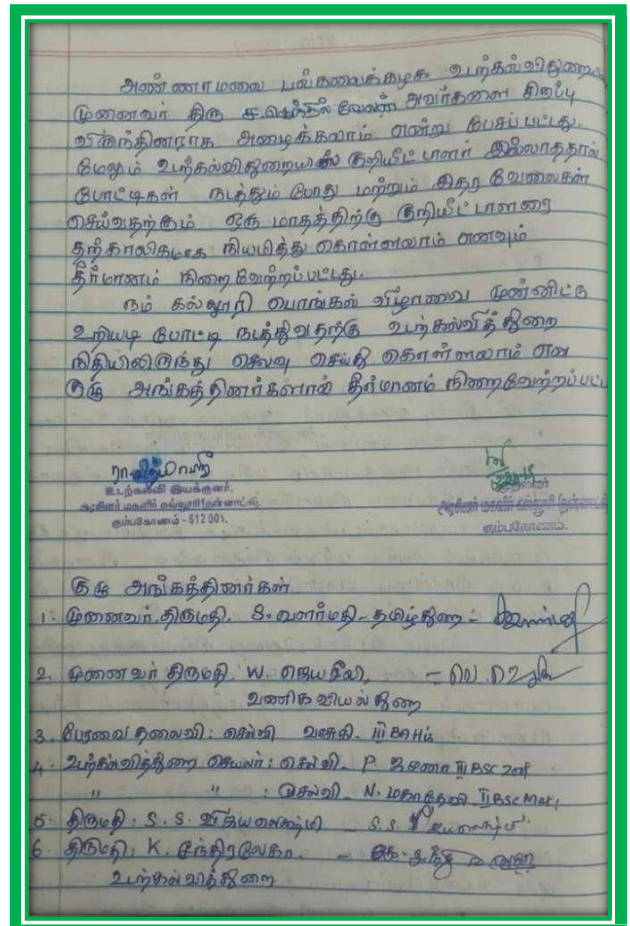 அண்ணாமலை பல்கலைக்கழக உடற்கல்விதுறை
முனைவர் திரு ச.செந்தில் வேலன் அவர்களை சிறப்பு
விருந்தினராக அழைக்கலாம் என்று பேசப்பட்டது.
மேலும் உடற்கல்விதுறையில் குறியீட்டாளர் இல்லாததால்
போட்டிகள் நடத்தும் போது மற்றும் இதர வேலைகள்
செய்வதற்கும் ஒரு மாதத்திற்கு குறியீட்டாளரை
தற்காலிகமாக நியமித்து கொள்ளலாம் எனவும்
தீர்மானம் நிறைவேற்றப்பட்டது.
நம் கல்லூரி பொங்கல் விழாவை முன்னிட்டு
உறியடி போட்டி நடத்துவதற்கு உடற்கல்வித்துறை
நிதியிலிருந்து செலவு செய்து கொள்ளலாம் என
குழு அங்கத்தினர்களால் தீர்மானம் நிறைவேற்றப்பட்ட
உடற்கல்வி இயக்குனர்.
அரசினர் மகளிர் கல்லூரி (தன்னாட்சி)
கும்பகோணம் - 612 001.
அரசினர் மகளிர் கல்லூரி (தன்னாட்சி)
கும்பகோணம்.
குழு அங்கத்தினர்கள்
1. முனைவர். திருமதி. S. வளர்மதி - தமிழ்துறை -
2. முனைவர் திருமதி. W. ஜெயசீலி, -
வணிகவியல் துறை
3. பேரவை தலைவி : செல்வி வசுகி. III BA
4. உடற்கல்வித்துறை செயலர் : செல்வி. P. III BSC Zool
" " : செல்வி. N. II BSc Mat,
5. திருமதி : S. S. விஜயலெஷ்மி - S. S. விஜயலெஷ்மி
6. திருமதி. K. சந்திரலேகா. -
உடற்கல்வித்துறை